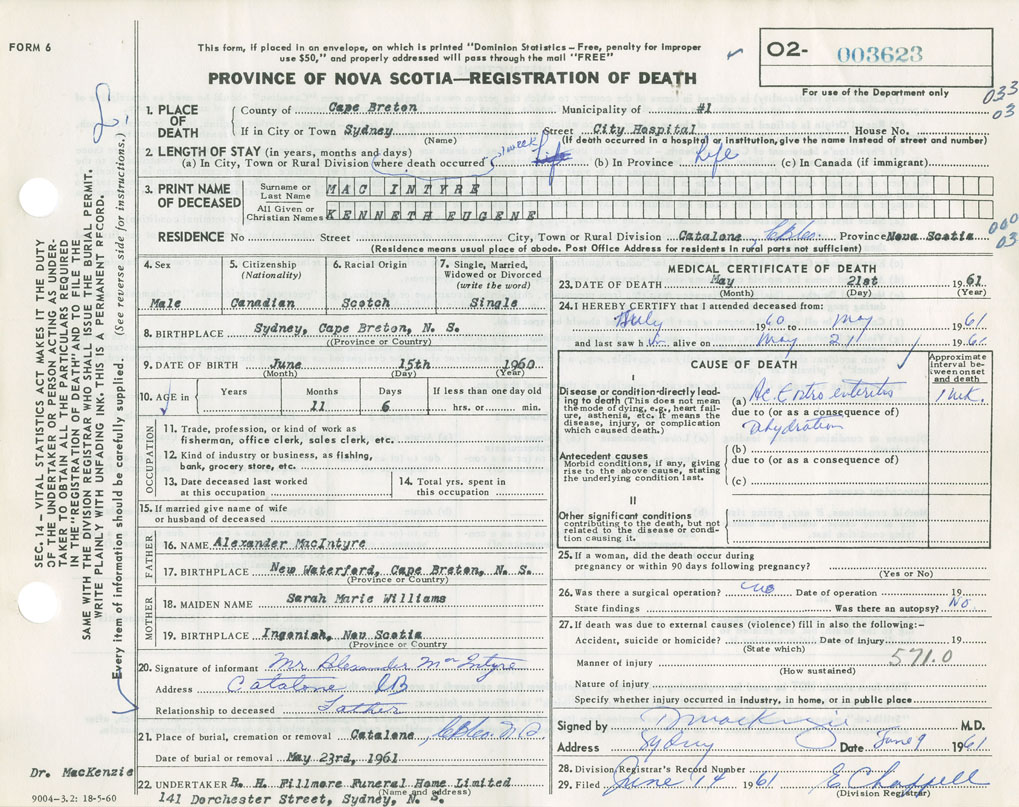 FORM 6
This form, if placed in an envelope, on which is printed "Dominion Statistics – Free, penalty for improper
use $50," and properly addressed will pass through the mail "FREE"
PROVINCE OF NOVA SCOTIA—REGISTRATION OF DEATH
O2- 003623
For use of the Department only
033
03
1. PLACE OF DEATH
County of Cape Breton Municipality of #1
If in City or Town Sydney Street City Hospital House No.
(Name) (If death occurred in a hospital or institution, give the name instead of street and number)
2. LENGTH OF STAY (in years, months and days)
(a) In City, Town or Rural Division (where death occurred) 1 week Life (b) In Province Life (c) In Canada (if immigrant)
3. PRINT NAME OF DECEASED
Surname or Last Name MAC INTYRE
All Given or Christian Names KENNETH EUGENE
RESIDENCE No Street City, Town or Rural Division Catalone, Province Nova Scotia
000
03
(Residence means usual place of abode. Post Office Address for residents in rural parts not sufficient)
4. Sex
Male
5. Citizenship (Nationality)
Canadian
6. Racial Origin
Scotch
7. Single, Married, Widowed or Divorced (write the word)
Single
8. BIRTHPLACE Sydney, Cape Breton, N. S.
(Province or Country)
9. DATE OF BIRTH June 15th 1960
(Month) (Day) (Year)
10. AGE in
Years Months Days If less than one day old
11 6 hrs. or min.
OCCUPATION
11. Trade, profession, or kind of work as
fisherman, office clerk, sales clerk, etc.
12. Kind of industry or business, as fishing,
bank, grocery store, etc.
13. Date deceased last worked
at this occupation
14. Total yrs. spent in
this occupation
15. If married give name of wife
or husband of deceased
FATHER
16. NAME Alexander MacIntyre
17. BIRTHPLACE New Waterford, Cape Breton, N. S.
(Province or Country)
MOTHER
18. MAIDEN NAME Sarah Marie Williams
19. BIRTHPLACE Ingonish, Nova Scotia
(Province or Country
20. Signature of informant Mr Alexander MacIntyre
Address Catalone CB
Relationship to deceased Father
21. Place of burial, cremation or removal Catalone,
Date of burial or removal May 23rd, 1961
22. UNDERTAKER R. H. Fillmore Funeral Home Limited
(Name and address)
141 Dorchester Street, Sydney, N. S.
MEDICAL CERTIFICATE OF DEATH
23. DATE OF DEATH May 21st 1961
(Month) (Day) (Year)
24. I HEREBY CERTIFY that I attended deceased from:
July 1960 to May 1961
and last saw him alive on May 21 1961
CAUSE OF DEATH
Approximate interval between onset and death
I
Disease or condition directly leading to death (This does not mean the mode of dying, e.g., heart failure, asthenia, etc. It means the disease, injury, or complication which caused death.)
(a) Ac Entro enteritis 1 wk.
due to (or as a consequence of)
Dhydration
Antecedent causes
Morbid conditions, if any, giving rise to the above cause, stating the underlying condition last.
(b)
due to (or as a consequence of)
(c)
II
Other significant conditions
contributing to the death, but not related to the disease or condition causing it.
25. If a woman, did the death occur during
pregnancy or within 90 days following pregnancy?
(Yes or No)
26. Was there a surgical operation? No Date of operation 19
State findings Was there an autopsy? No
27. If death was due to external causes (violence) fill in also the following:–
Accident, suicide or homicide? Date of injury 19
(State which)
Manner of injury 571.0
(How sustained)
Nature of injury
Specify whether injury occurred in industry, in home, or in public place
Signed by D MacKenzie M.D.
Address Sydney Date June 9 1961
28. Division Registrar's Record Number
29. Filed June 14 1961 E Chappell
(Division Registrar)
SEC. 14 – VITAL STATISTICS ACT MAKES IT THE DUTY
OF THE UNDERTAKER OR PERSON ACTING AS UNDERTAKER TO OBTAIN ALL THE PARTICULARS REQUIRED
IN THE "REGISTRATION OF DEATH" AND TO FILE THE
SAME WITH THE DIVISION REGISTRAR WHO SHALL ISSUE THE BURIAL PERMIT.
WRITE PLAINLY WITH UNFADING INK. THIS IS A PERMANENT RECORD.
Every item of information should be carefully supplied. (See reverse side for instructions.)
Dr. MacKenzie
9004-3.2: 18-5-60